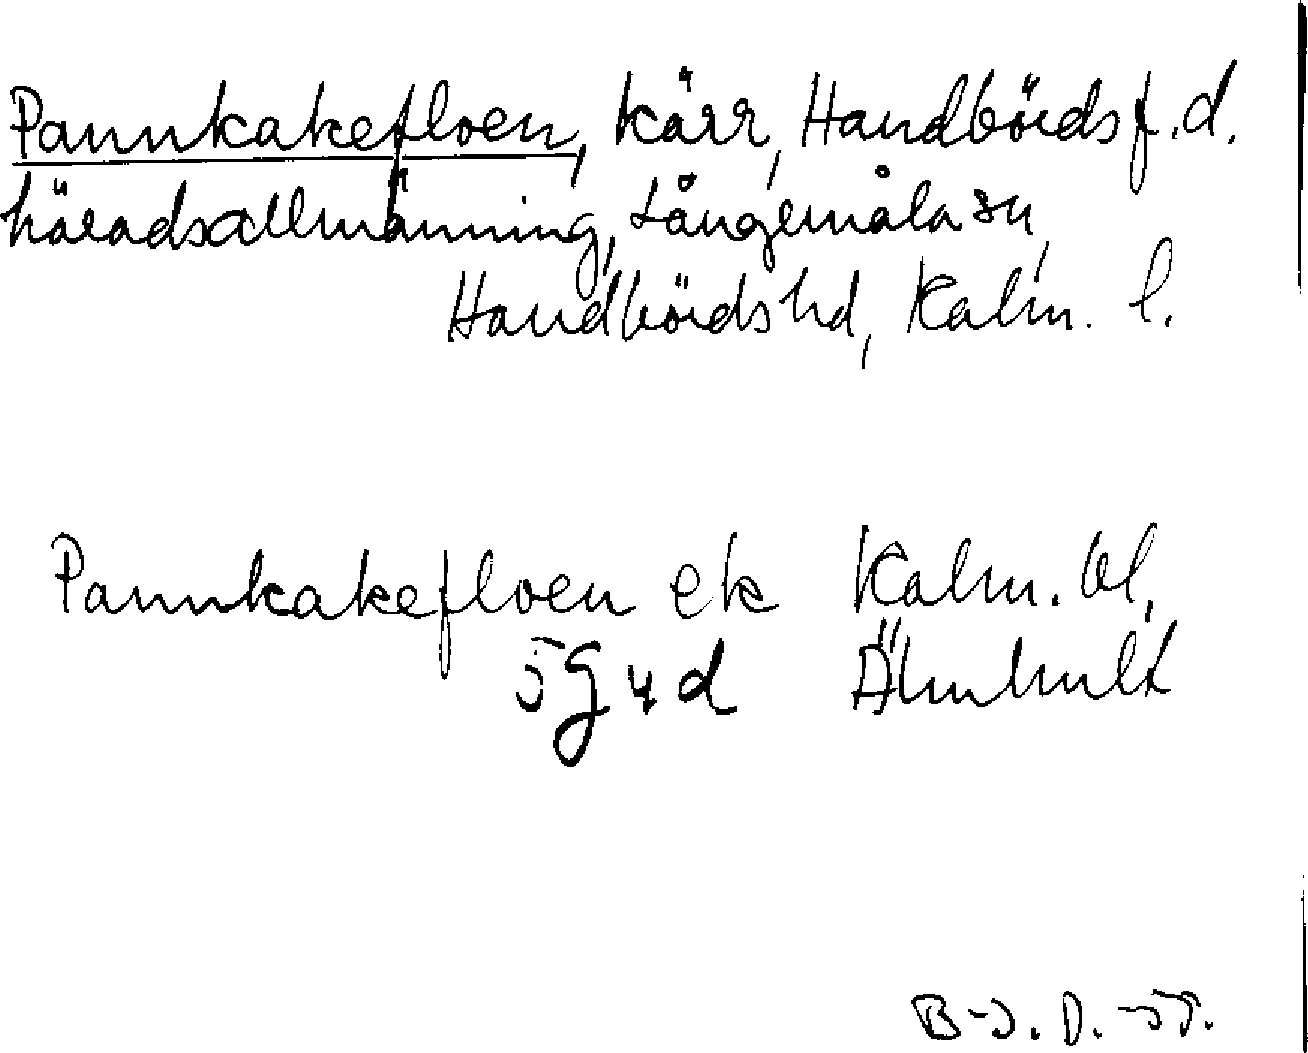 Pannkakefloen, kärr, Handbörds f.d.
häradsallmänning, Långemåla sn,
Handbörds hd, Kalm. l.
Pannkakefloen ek Kalm. bl,
5 G 4 d Älmhult
B-J. D. -55.